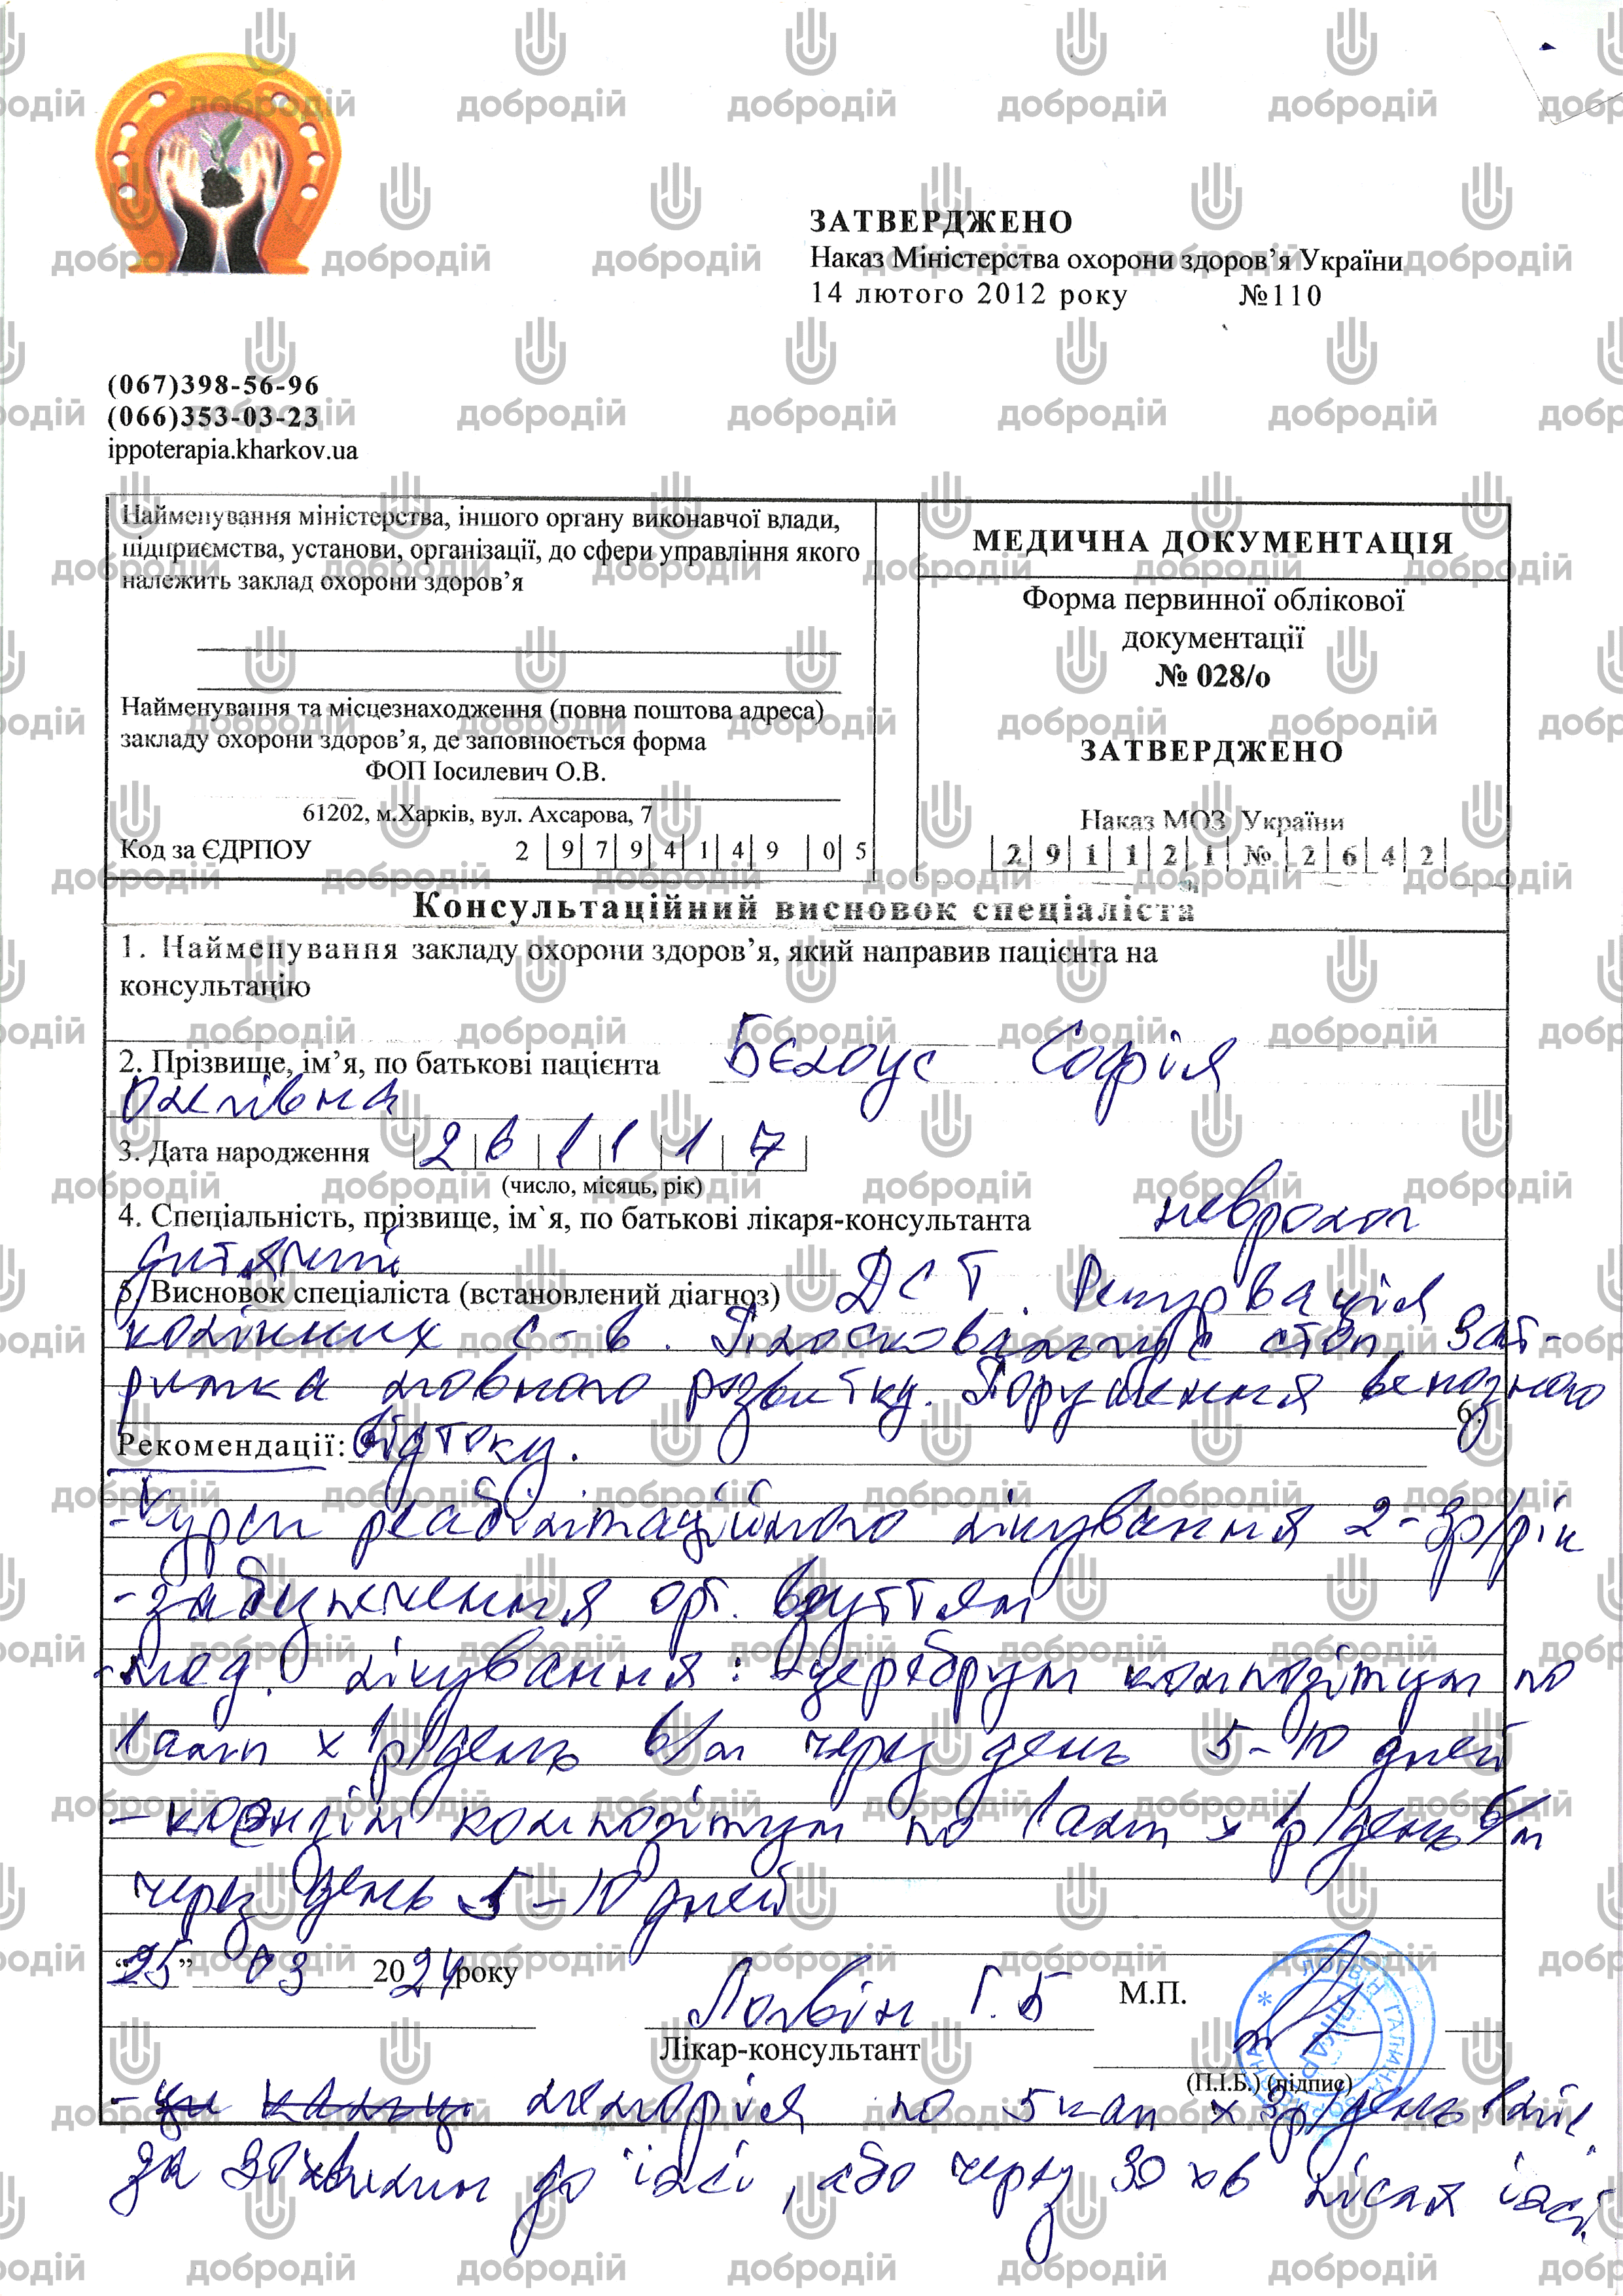 ЗАТВЕРДЖЕНО
Наказ Міністерства охорони здоров’я України
14 лютого 2012 року №110
(067)398-56-96
(066)353-03-23
ippoterapia.kharkov.ua
Найменування міністерства, іншого органу виконавчої влади,
підприємства, установи, організації, до сфери управління якого
належить заклад охорони здоров’я
Найменування та місцезнаходження (повна поштова адреса)
закладу охорони здоров’я, де заповнюється форма
ФОП Іосилевич О.В.
61202, м.Харків, вул. Ахсарова, 7
Код за ЄДРПОУ 2 9 7 9 4 1 4 9 0 5
МЕДИЧНА ДОКУМЕНТАЦІЯ
Форма первинної облікової
документації
№ 028/о
ЗАТВЕРДЖЕНО
Наказ МОЗ України
2 9 1 1 2 1 № 2 6 4 2
Консультаційний висновок спеціаліста
1. Найменування закладу охорони здоров’я, який направив пацієнта на
консультацію
2. Прізвище, ім’я, по батькові пацієнта Бєлоус Софія
3. Дата народження 2 6 1 1 1 7
(число, місяць, рік)
4. Спеціальність, прізвище, ім`я, по батькові лікаря-консультанта невролог
дитячий
5. Висновок спеціаліста (встановлений діагноз) ДСТ. Рекурвація
колінних с-в. Плосковальгус стоп. Зат-
римка мовного розвитку. Порушення венозного
6.
Рекомендації: відтоку.
- Курси реабілітаційного лікування 2-3р/рік
- забезпечення орт. взуттям
- мед. лікування: - церебрум композітум по
1 амп х 1р/день в/м через день 5-10 дней
- коэнзім композітум по 1 амп х 1р/день в/м
через день 5-10 дней
“25” 03 2024 року
Логвін Г.Б М.П.
Лікар-консультант
(П.І.Б.) (підпис)
ЛОГВІН ГАЛИНА БОРИСІВНА
ЛІКАР
- меморія по 5 кап х 3р/день
за 30 хвилин до їжі, або через 30 хв після їжі
добродій